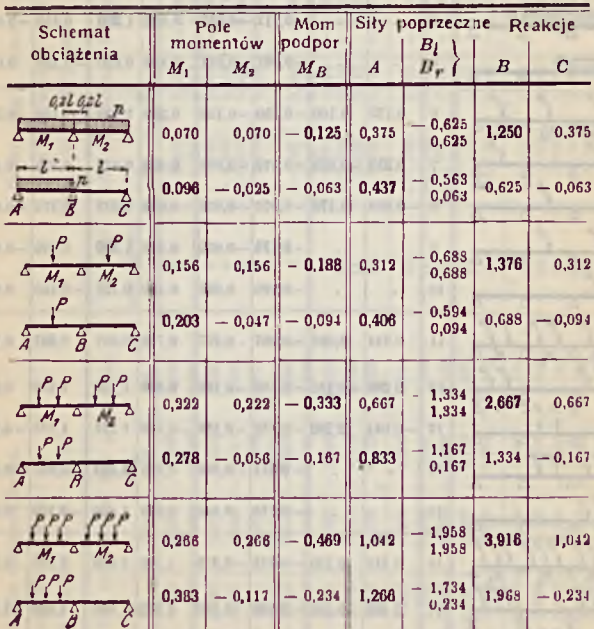 Schemat obciążenia | Pole momentów | Mom podpor | Siły poprzeczne | Reakcje
M₁ | M₂ | M_B | A | B_l B_r } | B | C
0,2l 0,2l n
M₁ M₂
0,070 | 0,070 | — 0,125 | 0,375 | — 0,625 0,625 | 1,250 | 0,375
l l
n
A B C
0.096 | — 0,025 | — 0,063 | 0,437 | — 0,563 0,063 | 0,625 | — 0,063
P P
M₁ M₂
0,156 | 0,156 | — 0,188 | 0,312 | — 0,688 0,688 | 1,376 | 0,312
P
A B C
0,203 | — 0,047 | — 0,094 | 0,406 | — 0,594 0,094 | 0,688 | — 0,094
P P P P
M₁ M₂
0,222 | 0,222 | — 0,333 | 0,667 | — 1,334 1,334 | 2,667 | 0,667
P P
A B C
0,278 | — 0,056 | — 0,167 | 0,833 | — 1,167 0,167 | 1,334 | — 0,167
P P P P P P
M₁ M₂
0,266 | 0,266 | — 0,469 | 1,042 | — 1,958 1,958 | 3,916 | 1,042
P P P
A B C
0,383 | — 0,117 | — 0,234 | 1,266 | — 1,734 0,234 | 1,968 | — 0,234